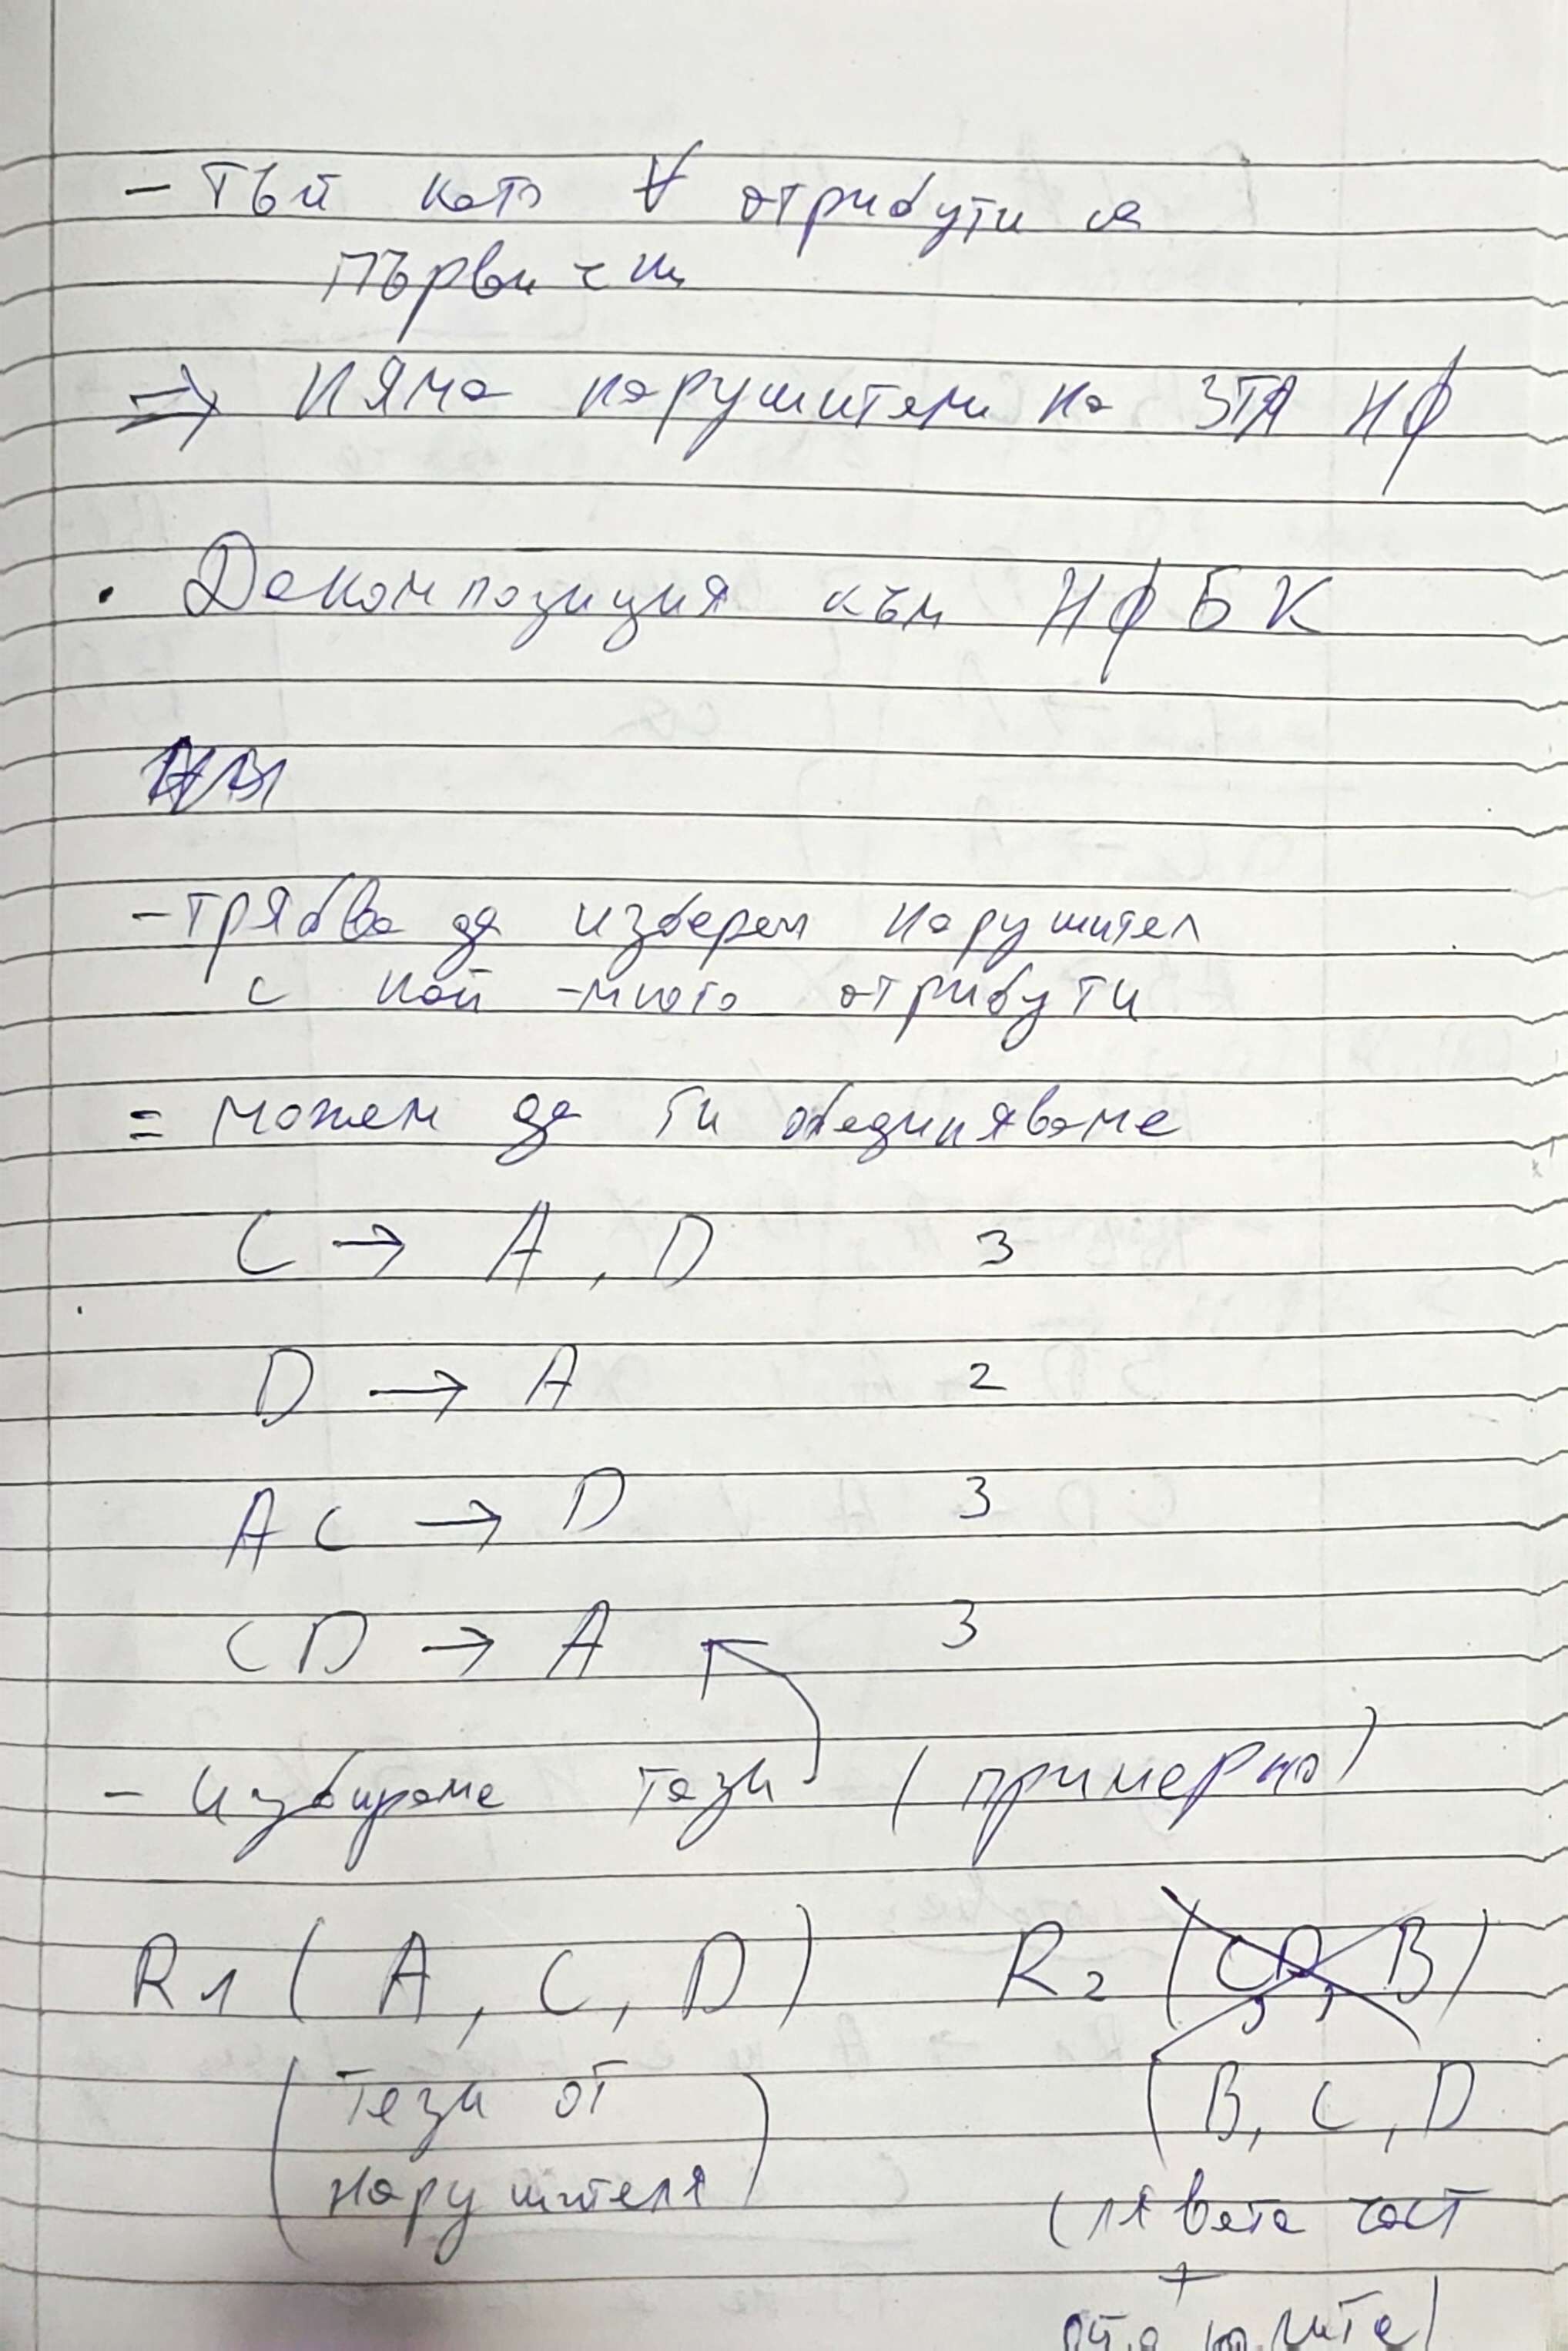 - Тъй като ∀ атрибути са
първични
⇒ Няма нарушители на 3та НФ
• Декомпозиция към НФБК
- трябва да изберем нарушител
с най-много атрибути
= можем да ги обединяваме
C → A, D 3
D → A 2
AC → D 3
CD → A 3
- избираме тази (примерно)
R1 (A, C, D) R2 (CD, B)
(тези от (B, C, D
нарушителя)
(лявата част
+